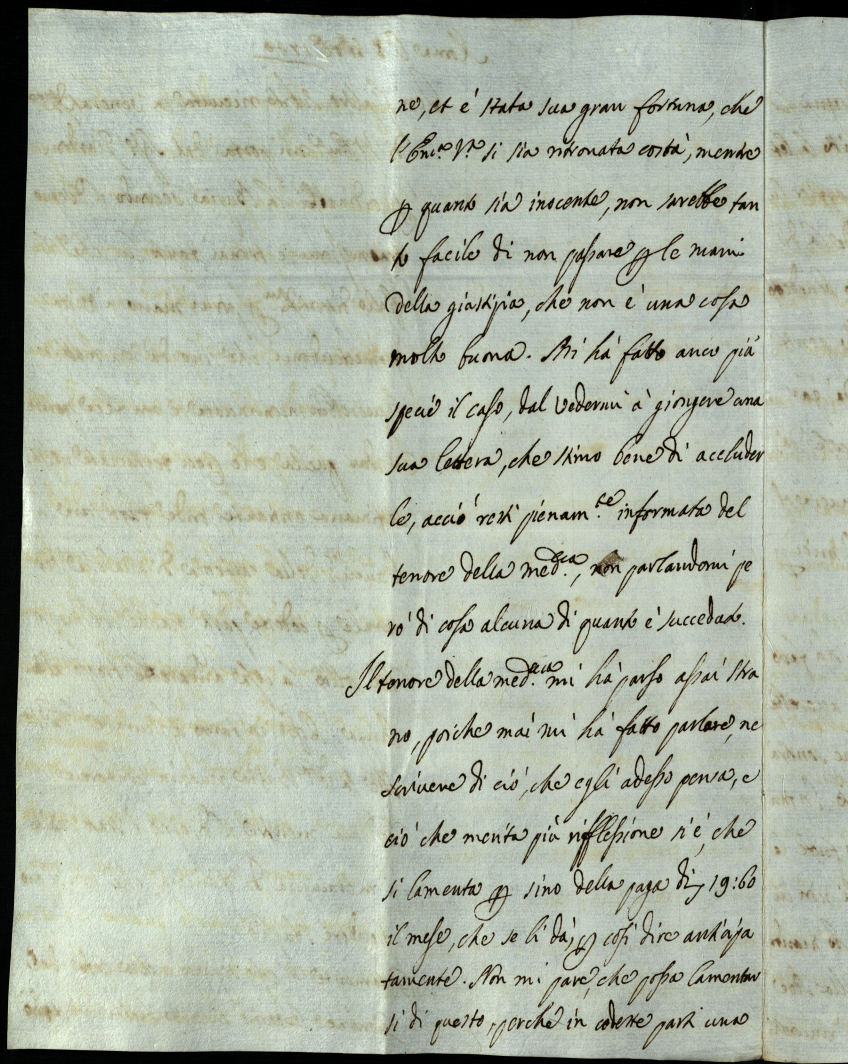 ne, et é stata sua gran fortuna, che
l'Em.ª V.ª si sia ritrovata costà, mentre
ꝑ quanto sia inocente, non sarebbe tan
to facile di non passare ꝑ le mani
della giustizia, che non è una cosa
molto buona. Mi hà fatto anco più
specie il caso, dal vedermi à giongere una
sua lettera, che stimo bene di accluder
le, acciò resti pienam.te informata del
tenore della med.ma, non parlandomi pe
rò di cosa alcuna di quanto è succeduto.
Il tenore della med.ma mi hà parso assai stra
no, poiche mai mi hà fatto parlare, ne
scrivere di ciò, che egli adesso pensa, e
ciò che merita più riflessione si è, che
si lamenta ꝑ sino della paga di 19:60
il mese, che se li dà, ꝑ così dire anticipa
tamente. Non mi pare, che possa lamentar
si di questo, perche in codeste parti una